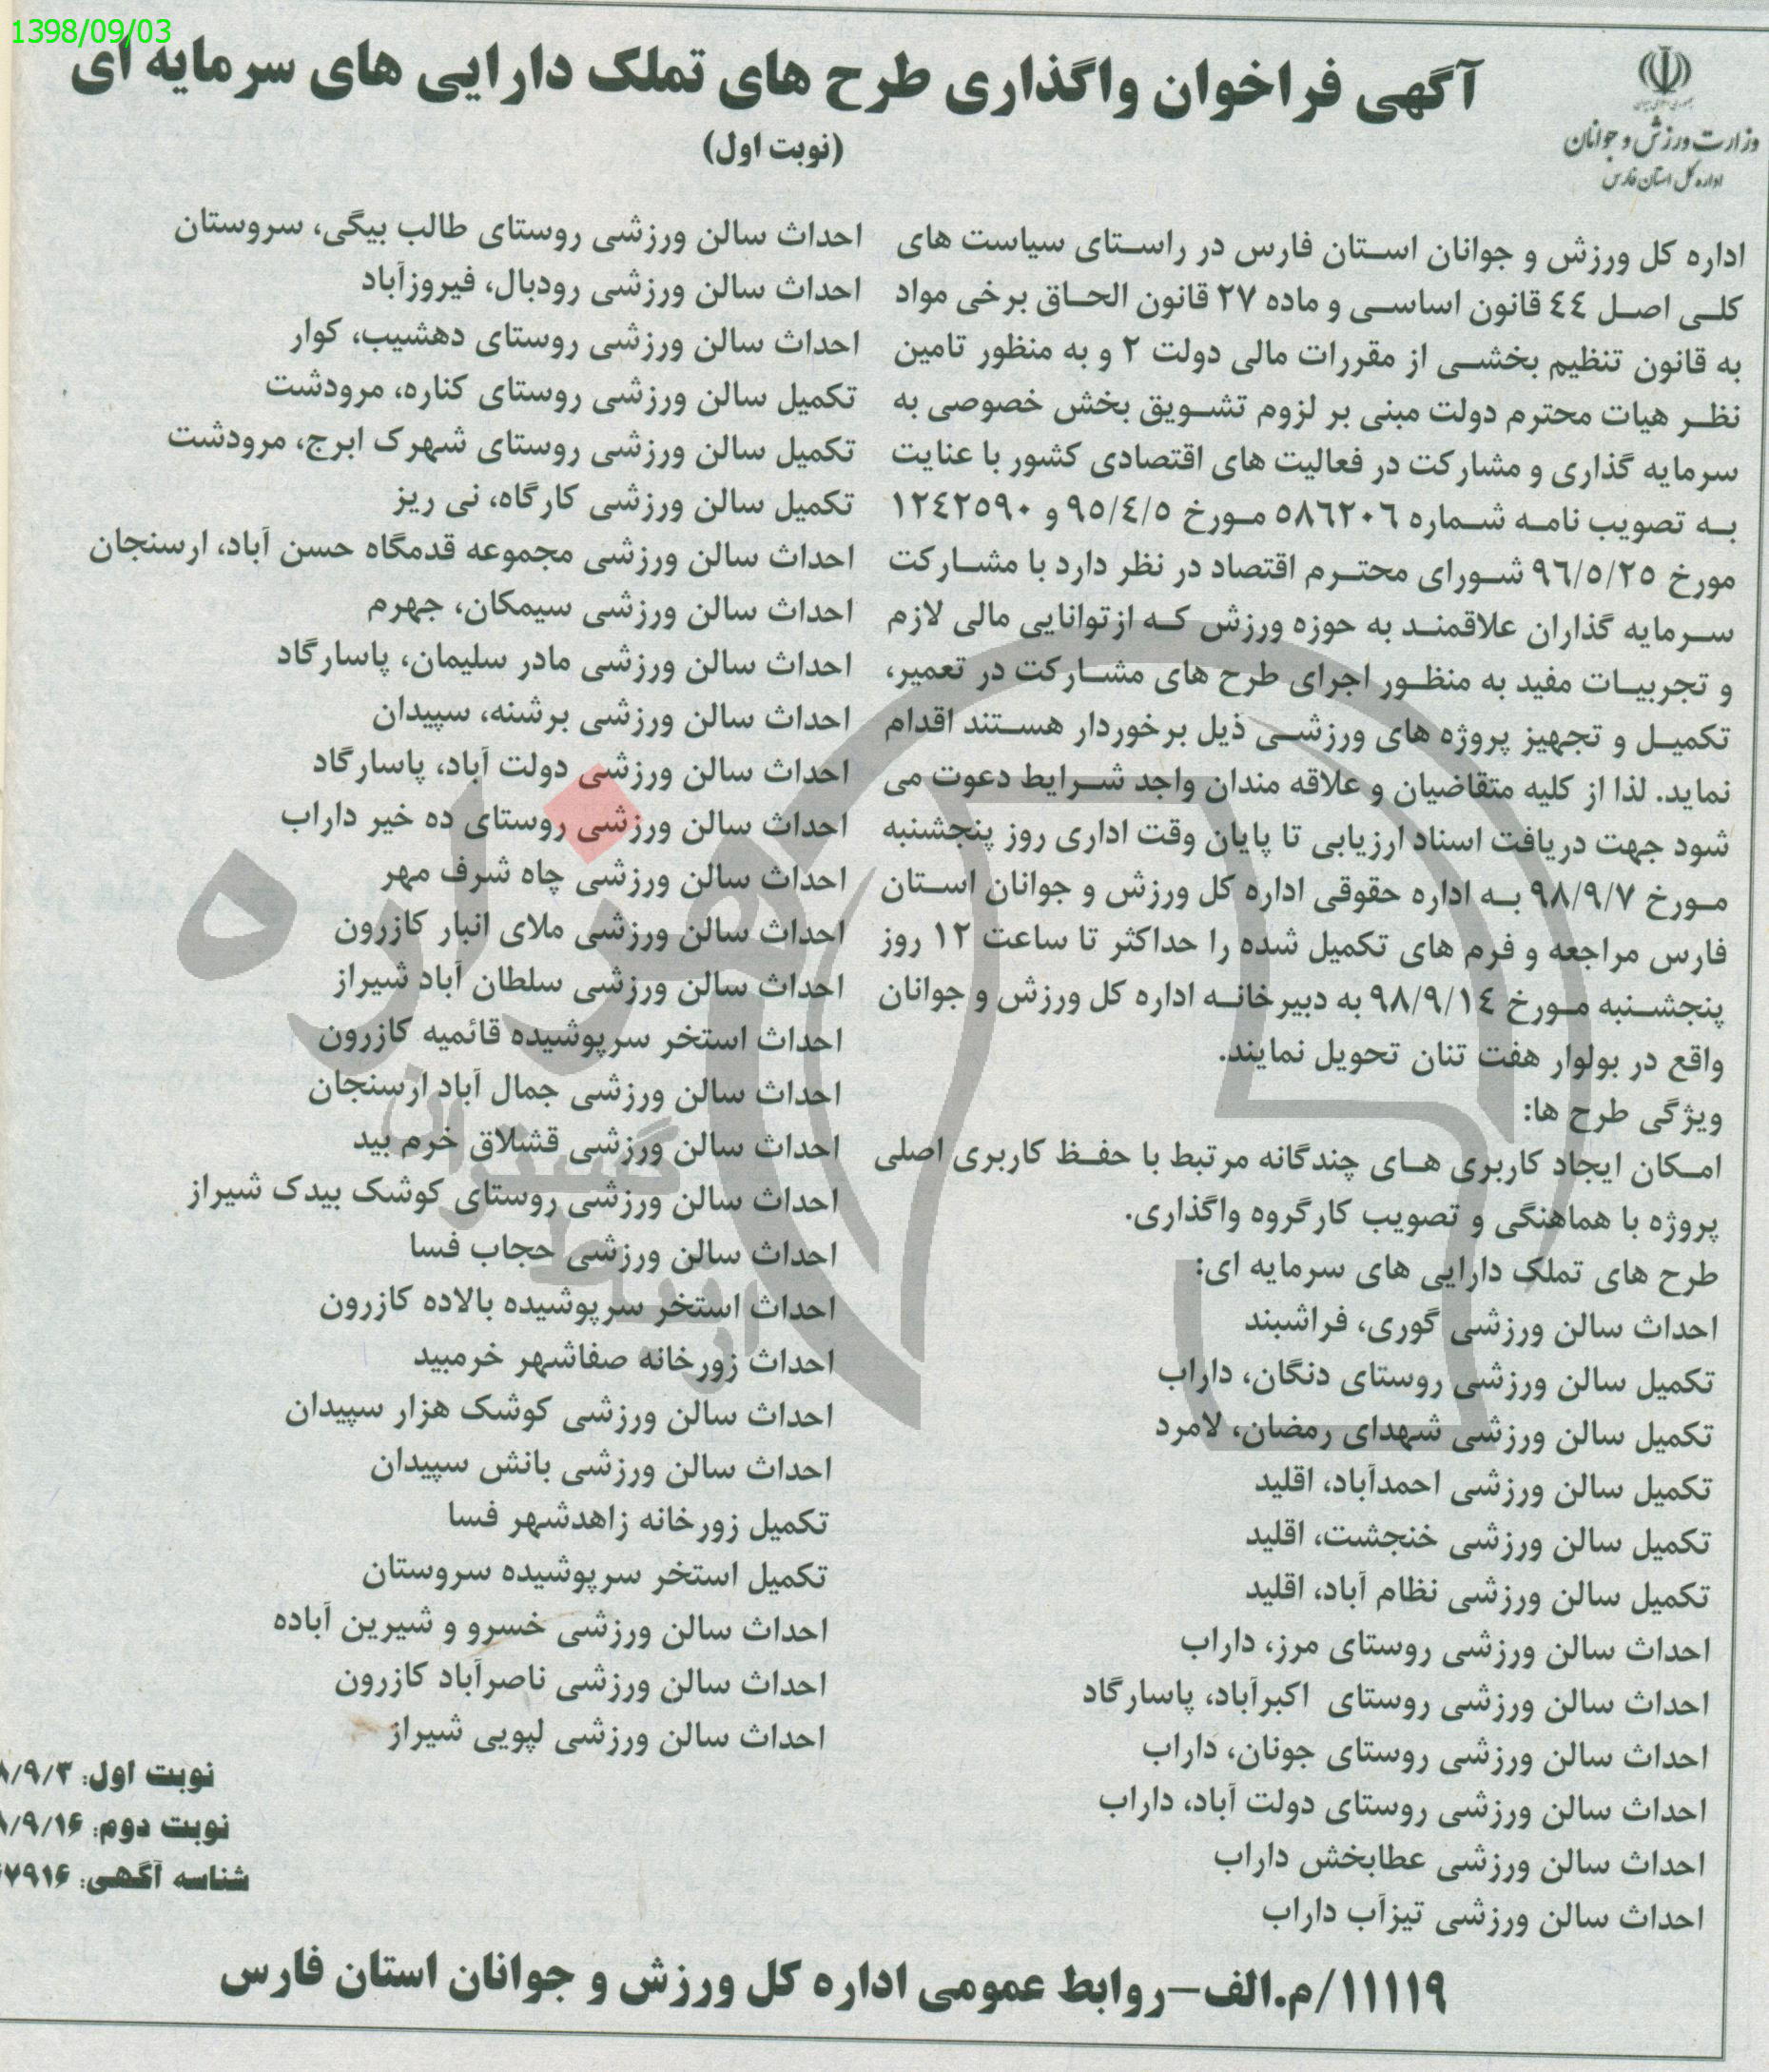 1398/09/03
جمهوری اسلامی ایران
وزارت ورزش و جوانان
اداره کل استان فارس
آگهی فراخوان واگذاری طرح های تملک دارایی های سرمایه ای
(نوبت اول)
اداره کل ورزش و جوانان استان فارس در راستای سیاست های
کلی اصل ٤٤ قانون اساسی و ماده ٢٧ قانون الحاق برخی مواد
به قانون تنظیم بخشی از مقررات مالی دولت ٢ و به منظور تامین
نظر هیات محترم دولت مبنی بر لزوم تشویق بخش خصوصی به
سرمایه گذاری و مشارکت در فعالیت های اقتصادی کشور با عنایت
به تصویب نامه شماره ٥٨٦٢٠٦ مورخ ٩٥/٤/٥ و ١٢٤٢٥٩٠
مورخ ٩٦/٥/٢٥ شورای محترم اقتصاد در نظر دارد با مشارکت
سرمایه گذاران علاقمند به حوزه ورزش که از توانایی مالی لازم
و تجربیات مفید به منظور اجرای طرح های مشارکت در تعمیر،
تکمیل و تجهیز پروژه های ورزشی ذیل برخوردار هستند اقدام
نماید. لذا از کلیه متقاضیان و علاقه مندان واجد شرایط دعوت می
شود جهت دریافت اسناد ارزیابی تا پایان وقت اداری روز پنجشنبه
مورخ ٩٨/٩/٧ به اداره حقوقی اداره کل ورزش و جوانان استان
فارس مراجعه و فرم های تکمیل شده را حداکثر تا ساعت ١٢ روز
پنجشنبه مورخ ٩٨/٩/١٤ به دبیرخانه اداره کل ورزش و جوانان
واقع در بولوار هفت تنان تحویل نمایند.
ویژگی طرح ها:
امکان ایجاد کاربری های چندگانه مرتبط با حفظ کاربری اصلی
پروژه با هماهنگی و تصویب کارگروه واگذاری.
طرح های تملک دارایی های سرمایه ای:
احداث سالن ورزشی گوری، فراشبند
تکمیل سالن ورزشی روستای دنگان، داراب
تکمیل سالن ورزشی شهدای رمضان، لامرد
تکمیل سالن ورزشی احمدآباد، اقلید
تکمیل سالن ورزشی خنجشت، اقلید
تکمیل سالن ورزشی نظام آباد، اقلید
احداث سالن ورزشی روستای مرز، داراب
احداث سالن ورزشی روستای اکبرآباد، پاسارگاد
احداث سالن ورزشی روستای جونان، داراب
احداث سالن ورزشی روستای دولت آباد، داراب
احداث سالن ورزشی عطابخش داراب
احداث سالن ورزشی تیزآب داراب
احداث سالن ورزشی روستای طالب بیگی، سروستان
احداث سالن ورزشی رودبال، فیروزآباد
احداث سالن ورزشی روستای دهشیب، کوار
تکمیل سالن ورزشی روستای کناره، مرودشت
تکمیل سالن ورزشی روستای شهرک ابرج، مرودشت
تکمیل سالن ورزشی کارگاه، نی ریز
احداث سالن ورزشی مجموعه قدمگاه حسن آباد، ارسنجان
احداث سالن ورزشی سیمکان، جهرم
احداث سالن ورزشی مادر سلیمان، پاسارگاد
احداث سالن ورزشی برشنه، سپیدان
احداث سالن ورزشی دولت آباد، پاسارگاد
احداث سالن ورزشی روستای ده خیر داراب
احداث سالن ورزشی چاه شرف مهر
احداث سالن ورزشی ملای انبار کازرون
احداث سالن ورزشی سلطان آباد شیراز
احداث استخر سرپوشیده قائمیه کازرون
احداث سالن ورزشی جمال آباد ارسنجان
احداث سالن ورزشی قشلاق خرم بید
احداث سالن ورزشی روستای کوشک بیدک شیراز
احداث سالن ورزشی حجاب فسا
احداث استخر سرپوشیده بالاده کازرون
احداث زورخانه صفاشهر خرمبید
احداث سالن ورزشی کوشک هزار سپیدان
احداث سالن ورزشی بانش سپیدان
تکمیل زورخانه زاهدشهر فسا
تکمیل استخر سرپوشیده سروستان
احداث سالن ورزشی خسرو و شیرین آباده
احداث سالن ورزشی ناصرآباد کازرون
احداث سالن ورزشی لپویی شیراز
نوبت اول: ۸/۹/۳
نوبت دوم: ۸/۹/۱۶
شناسه آگهی: ۷۹۱۶
۱۱۱۱۹/م.الف-روابط عمومی اداره کل ورزش و جوانان استان فارس